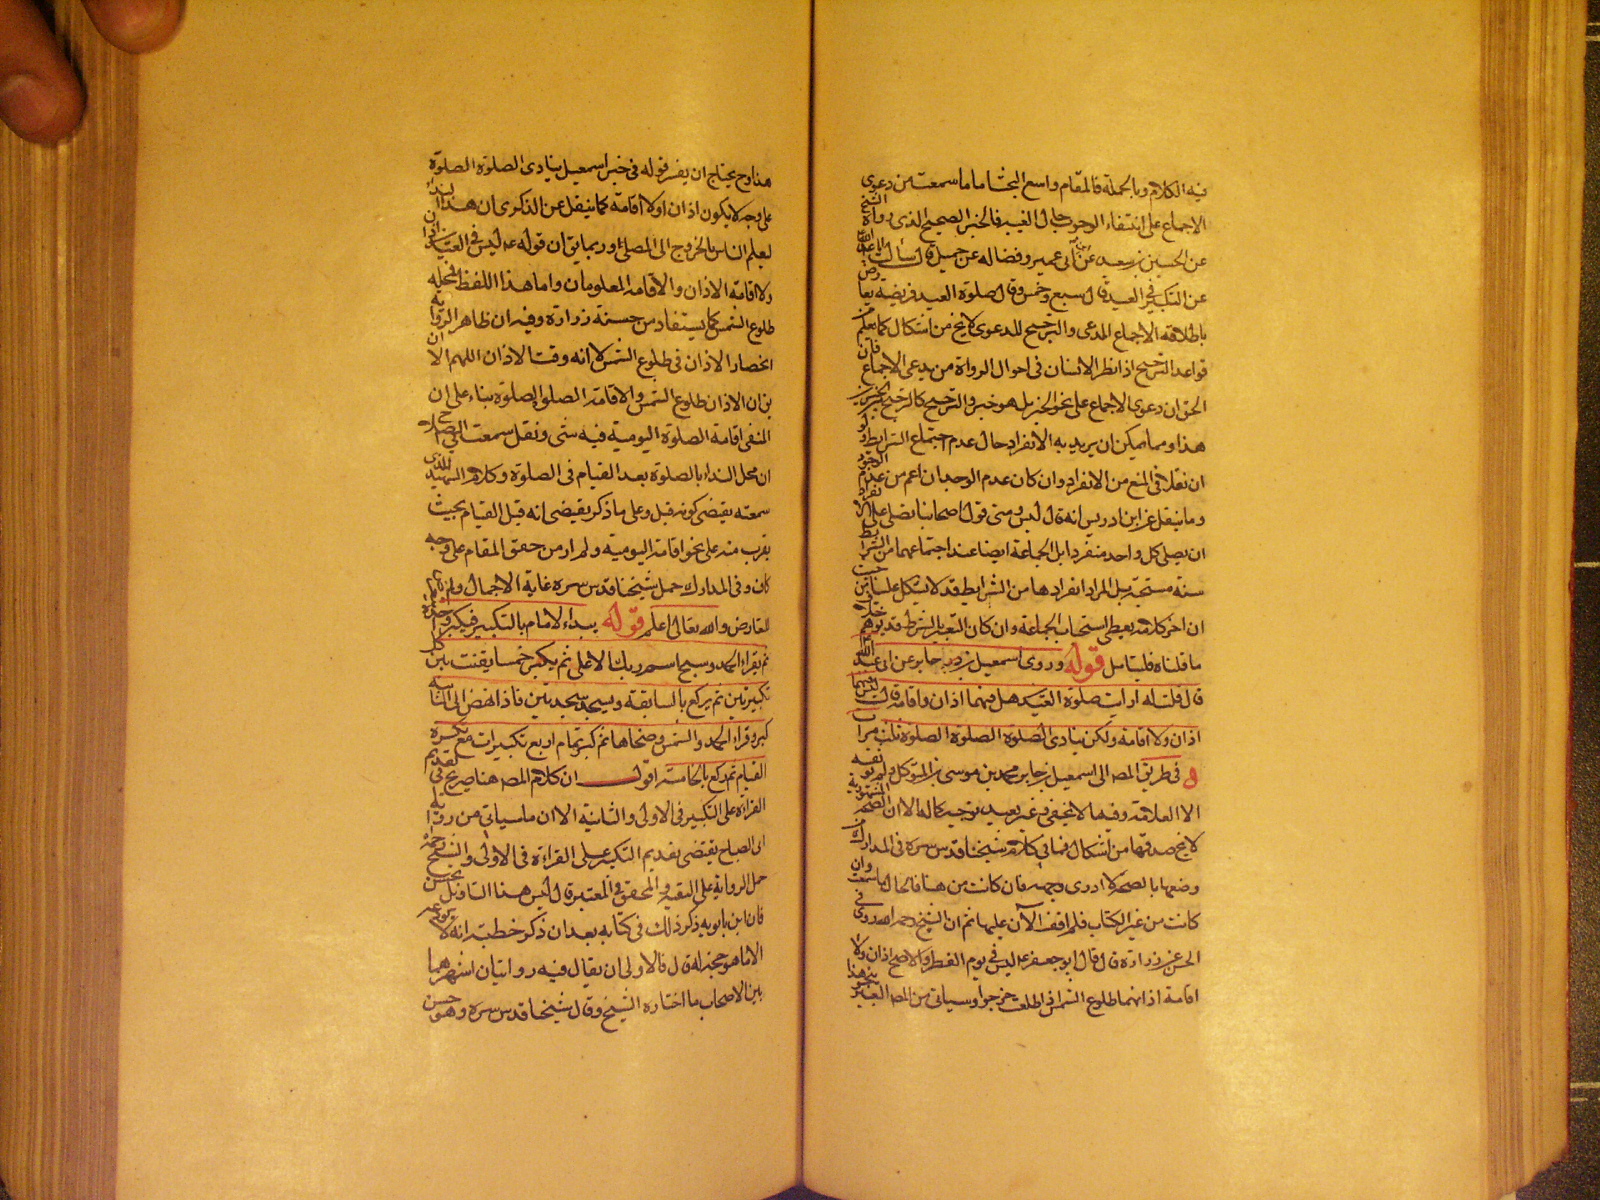 فيه الكلام وبالجملة فالمقام واسع البحث اما ما سمعت من دعوى
الاجماع على انتفاء الوجوب حال الغيبة فالخبر الصحيح الذى رواه الشيخ
عن الحسين بن سعيد عن ابن ابى عمير وفضاله عن جميل قال سالت ابا عبد الله
عن التكبير فى العيد قال سبع وخمس وقال صلوة العيد فريضة
باطلاقه الاجماع المدعى والترجيح للدعوى لا يخ من اشكال كما يعلم من
قواعد الترجيح اذ انظر الانسان فى احوال الرواة من يدعى الاجماع فان
الحق ان دعوى الاجماع على نحو الخبر بل هو خبر والترجيح كالترجيح
هذا ومما يمكن ان يريد به الانفراد حال عدم اجتماع الشرايط
ان نقلا فى المنع من الانفراد وان كان عدم الوجدان اعم من عدم الوجود
وما ينقل عن ابن ادريس انه قال ليس ومتى قول اصحابنا تصلى على الانفراد
ان يصلى كل واحد منفردا بل الجماعة ايضا عند اجتماعها من الشرايط
سنة مستحبة بل المراد انفرادها من الشرايط قد لا يشكل علينا من حيث
ان اخر كلامه يعطى استحباب الجماعة وان كان التعبير بالشرط قد يوهم خلاف
ما قلناه فليتامل قوله وروى اسمعيل بن جابر عن ابى عبد الله
قال قلت له ارايت صلوة العيد هل فيهما اذان واقامة قال ليس فيهما
اذان ولا اقامة ولكن ينادى الصلوة الصلوة الصلوة ثلث مرات
فى طريق المصـ الى اسمعيل بن جابر محمد بن موسى بن المتوكل ولم يوثقه
الا العلامة وفيها لا يخفى وغير بعيد توجيه كماله الا ان الصحة المشهورية
لا يخ صدقها من اشكال فما فى كلام شيخنا قدس سره فى المدارك من
وصفها بالصحة لا ادرى وجهه فان كانت من هنا فالحال ما سمعت وان
كانت من غير الكتاب فلم اقف الآن عليها ثم ان الشيخ رحمه الله روى فى
الحسن عن زرارة قال قال ابو جعفر عـ ليس فى يوم الفطر والاضحى اذان ولا
اقامة اذانهما طلوع الشمس اذا طلعت خرجوا وسياتى من المصـ
هذا وح يحتاج ان يفسر قوله فى خبر اسمعيل ينادى الصلوة الصلوة
على وجه لا يكون اذان اولا اقامة كما ينقل عن الذكرى ان هذا النداء
ليعلم الناس بالخروج الى المصلى وربما يق ان قوله عـ ليس فى العيدين اذان
ولا اقامة الاذان والاقامة المعلومان واما هذا اللفظ فمحله
طلوع الشمس كما يستفاد من حسنة زرارة وفيه ان ظاهر الرواية
انحصار الاذان فى طلوع الشمس لا انه وقت الاذان اللهم الا ان
ان الاذان طلوع الشمس والاقامة الصلوة الصلوة بناء على ان
المنفى اقامة الصلوة اليومية فيه شئ ونقل سمعت
ان محل النداء بالصلوة بعد القيام فى الصلوة وكلام الشهيد الذى
سمعته يقتضى كونه قبل وعلى ما ذكر يقتضى انه قبل القيام بحيث
يقرب منه على نحو اقامة اليومية ولم ار من حقق المقام على وجه
كان وفى المدارك حمل شيخنا قدس سره غاية الاجمال ولم
للعارض والله تعالى اعلم قوله يبداء الامام بالتكبير فيكبر واحدة
ثم يقراء الحمد وسبح اسم ربك الاعلى ثم يكبر خمسا يقنت بين كل
تكبيرتين ثم يركع بالسابعة ويسجد سجدتين فاذا نهض الى الثانية
كبر وقراء الحمد والشمس وضحاها ثم كبر تمام اربع تكبيرات مع تكبيرة
القيام ثم ركع بالخامسة اقول ان كلام المصـ هنا صريح فى تقديم
القراءة على التكبير فى الاولى والثانية الا ان ما سياتى من رواية
ابى الصباح يقتضى تقديم التكبير على القراءة فى الاولى والشيخ رحمه
حمل الرواية على التقية والمحقق فى المعتبر قال ليس هذا التاويل بحسن
فان ابن بابويه ذكر ذلك فى كتابه بعد ان ذكر خطبته انه لا يودع فيه
الا ما هو حجة له قال فالاولى ان يقال فيه روايتان اشهرهما
بين الاصحاب ما اختاره الشيخ وقال شيخنا قدس سره وهو حسن